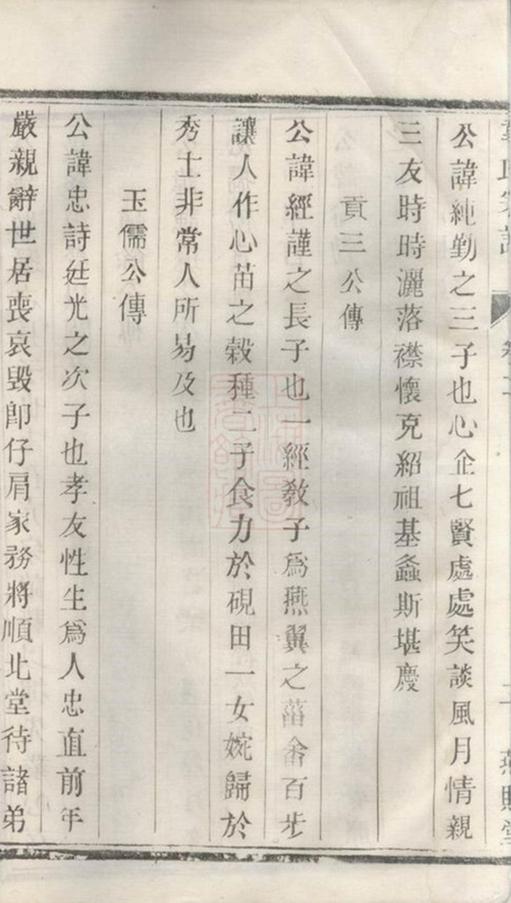 公諱純勤之三子也心企七賢處處笑談風月情親
三友時時灑落襟懷克紹祖基螽斯堪慶
貢三公傳
公諱經謹之長子也一經敎子爲燕翼之菑畬百步
讓人作心苗之穀種二子食力於硯田一女婉歸於
秀士非常人所易及也
玉儒公傳
公諱忠詩廷光之次子也孝友性生爲人忠直前年
嚴親辭世居喪哀毀卽仔肩家務將順北堂待諸弟